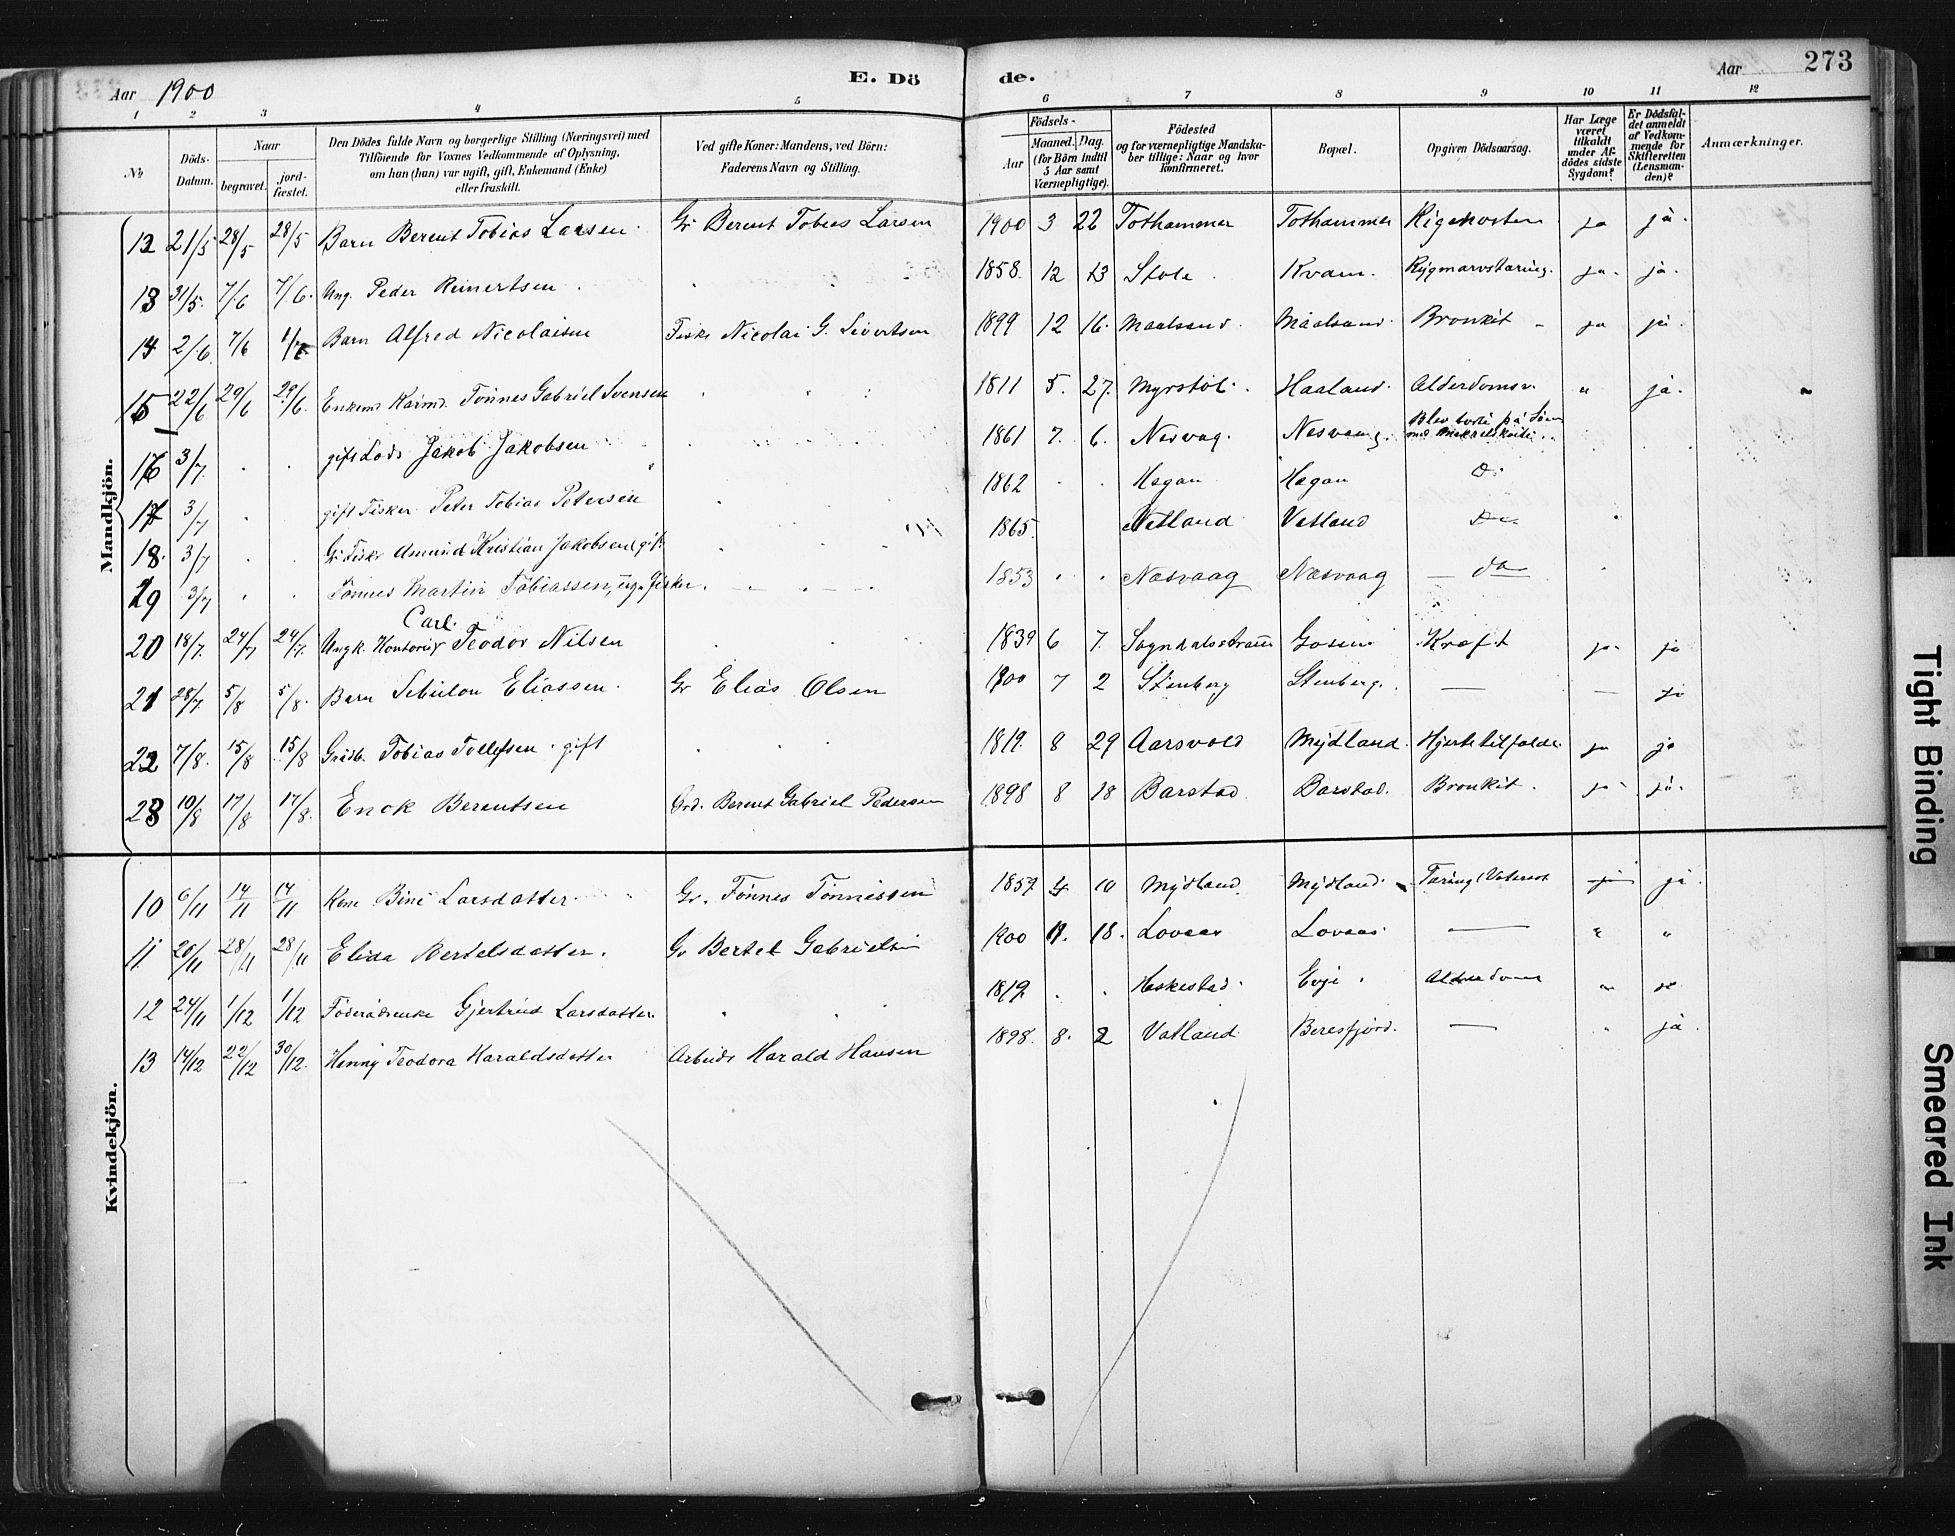 Aar 1900 E. Dö de. Aar 273
1 2 3 4 5 6 7 8 9 10 11 12
No
Döds-Datum.
Naar
begravet.
jord-fæstet.
Den Dödes fulde Navn og borgerlige Stilling (Næringsvei) med
Tilföiende for Voxnes Vedkommende af Oplysning,
om han (hun) var ugift, gift, Enkemand (Enke)
eller fraskilt.
Ved gifte Koner: Mandens, ved Börn:
Faderens Navn og Stilling.
Födsels-
Aar
Maaned. Dag.
(for Börn indtil
5 Aar samt
Værnepligtige).
Födested
og for værnepligtige Mandska-
ber tillige: Naar og hvor
konfirmeret.
Bopæl.
Opgiven Dödsaarsag.
Har Læge
været
tilkaldt
under Af-
dödes sidste
Sygdom?
Er Dödsfal-
det anmeldt
af Vedkom-
mende for
Skifteretten
(Lensman-
den)?
Anmærkninger.
Mandkjön.
12 21/5 28/5 28/5 Barn Berent Tobias Larsen Gr Berent Tobias Larsen 1900 3 22 Tothammer Tothammer ja ja.
13 31/5. 7/6 7/6. Ung. Peder Reinertsen 1858. 12 13 Stole Kvam. Rygmarvstæring. ja. ja.
14 2/6. 7/6 Barn Alfred Nicolaisen Fisker Nicolai G. Sivertsen 1899 12 16. Maalsund. Maalsund. Bronkit ja ja.
15 22/6 29/6 29/6. Enkemd Tönnes Gabriel Svensen 1811 5. 27. Myrstöl. Haaland. Alderdomsv. " ja.
16 3/7. gift Lods Jakob Jakobsen 1861 7. 6. Nesvag. Nesvaag. Blev borte på Söen
med
17 3/7 gift Fisker Peter Tobias Petersen 1862 Hegan Hegan Do
18. 3/7 Fisker Amund Kristian Jakobsen, gift 1865. Vatland Vatland Do
19 3/7 Tönnes Martin Tobiassen, ugift Fisker. 1853 Næsvaag Næsvaag — do
20 18/7. 24/7 24/7. Ungk. Carl Teodor Nilsen 1839 6 7. Sogndalsstrand Kræft ja. ja
21 28/7 5/8 5/8. Barn Sebulon Eliassen. Gr Elias Olsen 1900 7 2 Stenberg Stenberg. — — ja
22 7/8. 15/8 15/8 Grådb. Tobias Tollefsen. gift 1819. 8 29 Aarsvold Mydland. Hjertetilfælde ja ja
23 10/8 17/8 17/8. Enok Berentsen Grd. Berent Gabriel Pedersen 1898 8 18 Barstad Barstad. Bronkit. ja ja.
Kvindekjön.
10 6/11 14/11 14/11 Kone Bine Larsdatter. Gr. Tönnes Tönnessen 1857 4 10 Mydland. Mydland. Tæring ja ja
11. 20/11 28/11 28/11 Elida Bertelsdatter. Gr Bertel Gabrielsen 1900 11. 18. Lovaas Lovaas. — " "
12 24/11 1/12 1/12 Föderådsenke Gjertrud Larsdatter. 1819. Heskestad. Evje. Alderdom " ja
13 14/12 22/12 30/12. Henny Teodora Haraldsdatter Arbeider Harald Hansen 1898. 8. 2 Vatland Beresfjord. — " ja.
Tight Binding
Smeared Ink